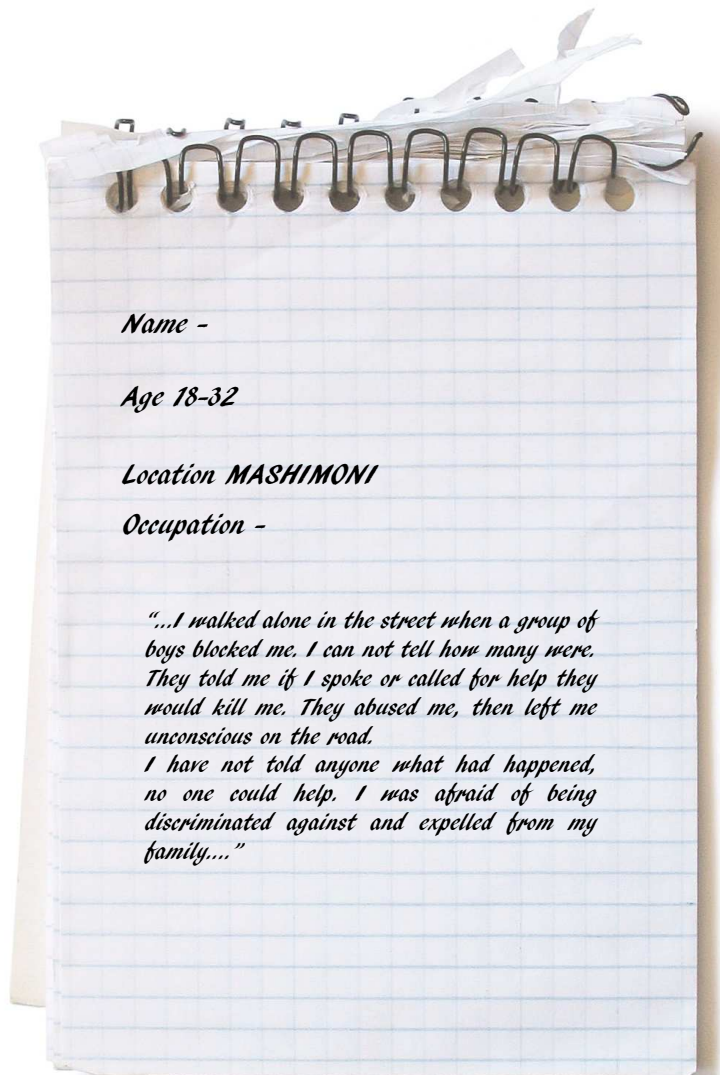 Name -
Age 18-32
Location MASHIMONI
Occupation -
“...I walked alone in the street when a group of
boys blocked me. I can not tell how many were.
They told me if I spoke or called for help they
would kill me. They abused me, then left me
unconscious on the road.
I have not told anyone what had happened,
no one could help. I was afraid of being
discriminated against and expelled from my
family....”